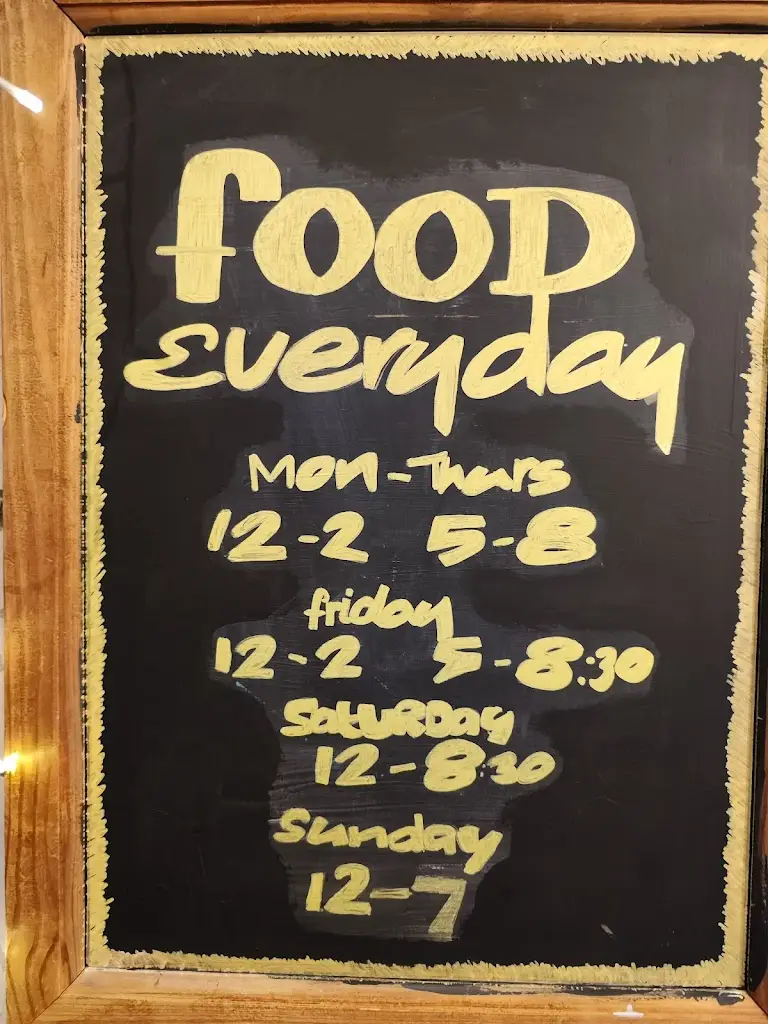 fOOD
Everyday
Mon-Thurs
12-2 5-8
friday
12-2 5-8:30
SatURDay
12-8:30
Sunday
12-7